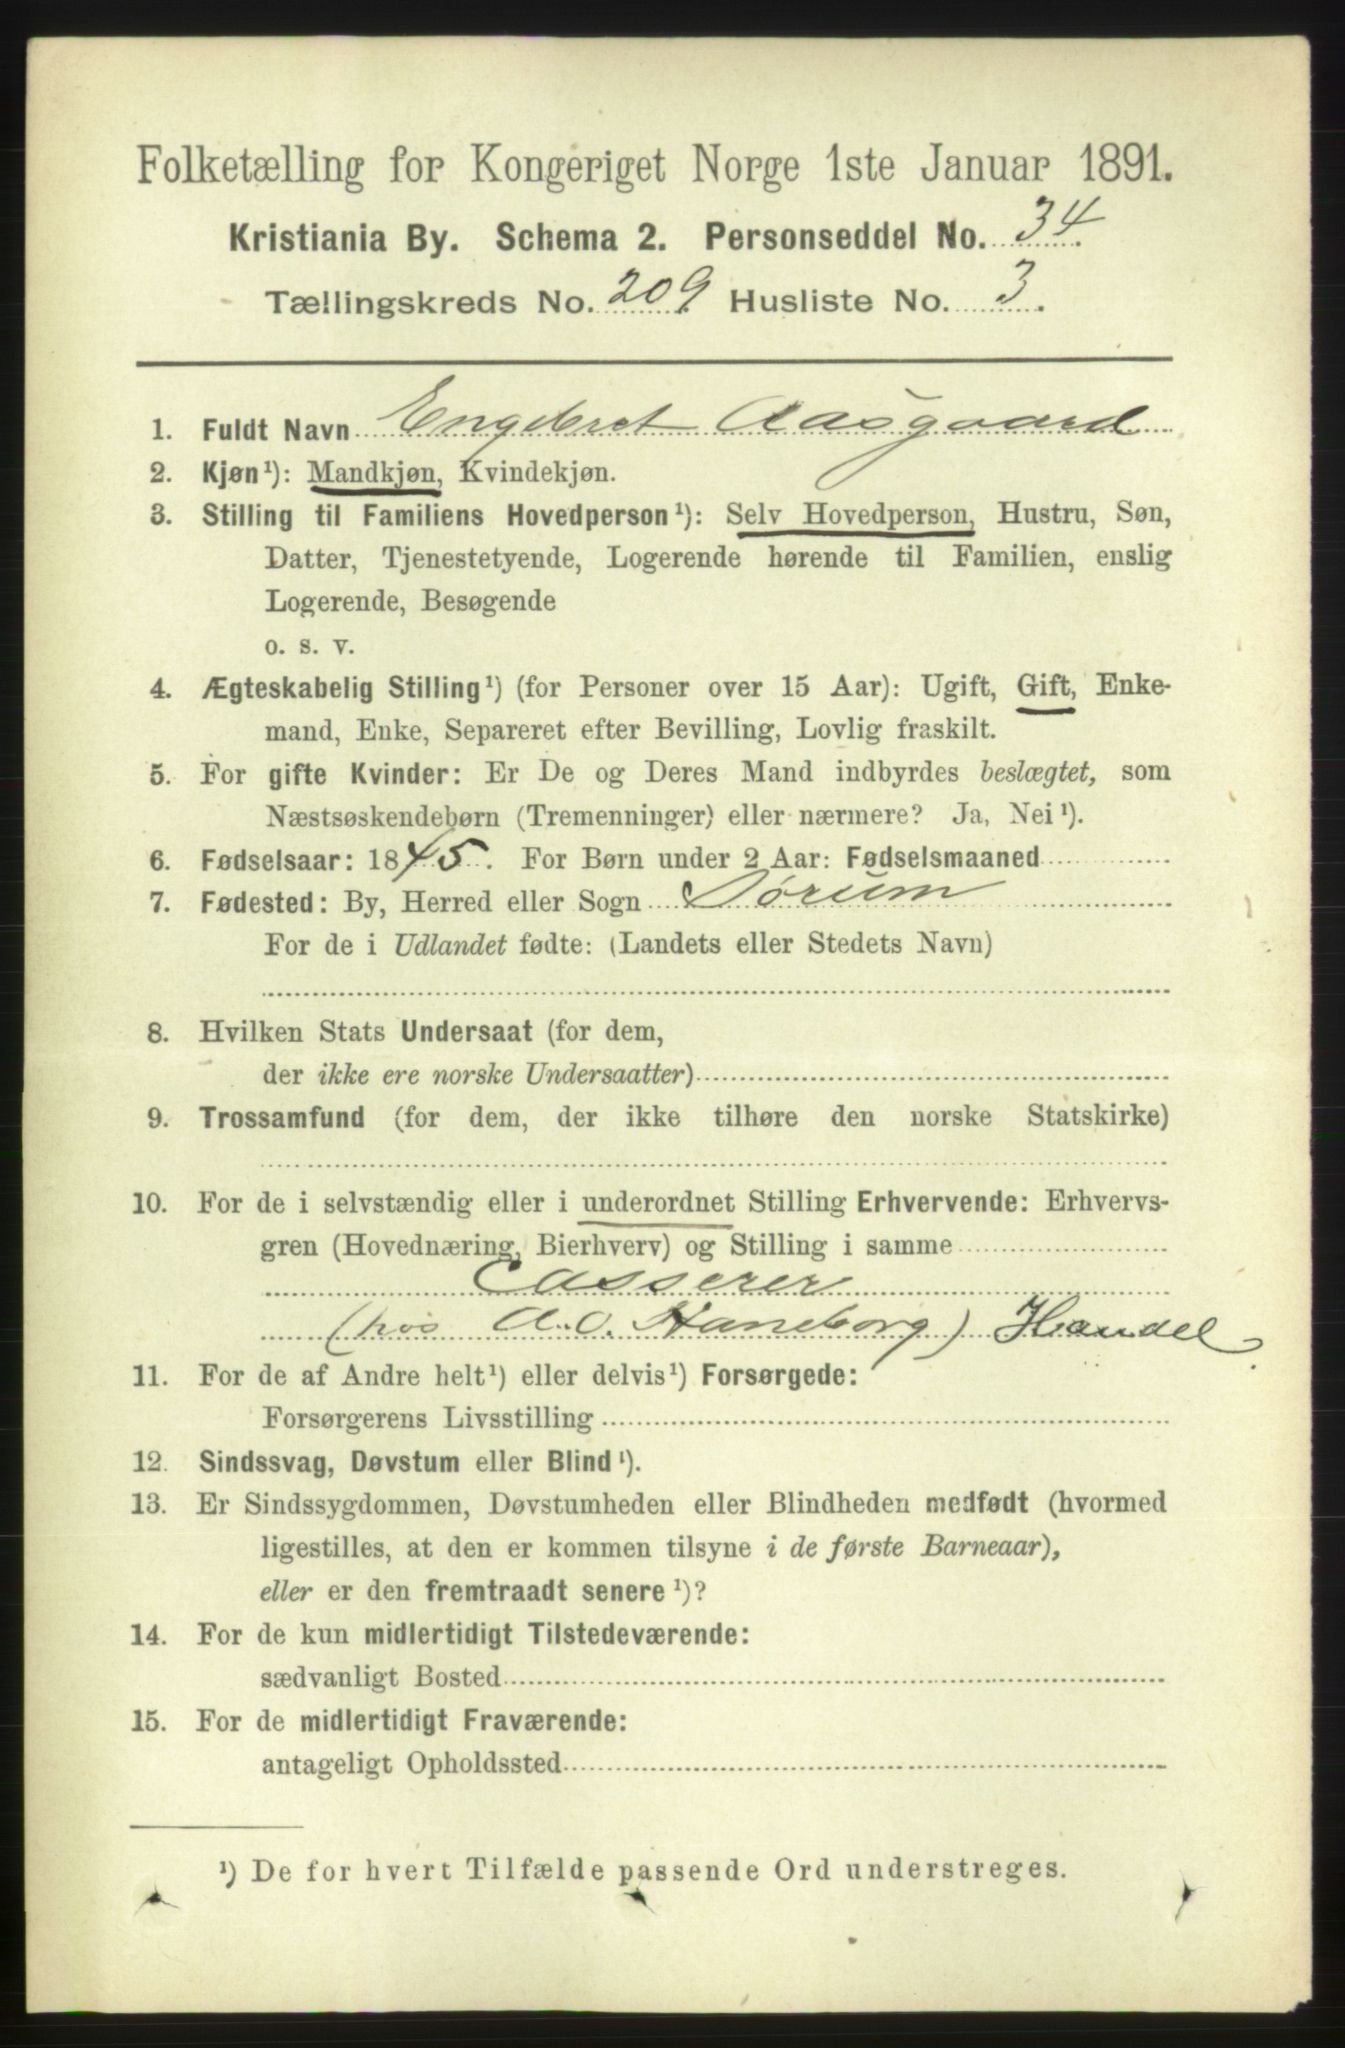 Folketælling for Kongeriget Norge 1ste Januar 1891.
Kristiania By. Schema 2. Personseddel No. 34.
Tællingskreds No. 209 Husliste No. 3.
1. Fuldt Navn Engebret Aasgaard
2. Kjøn¹): Mandkjøn, Kvindekjøn.
3. Stilling til Familiens Hovedperson¹): Selv Hovedperson, Hustru, Søn,
Datter, Tjenestetyende, Logerende hørende til Familien, enslig
Logerende, Besøgende
o. s. v.
4. Ægteskabelig Stilling¹) (for Personer over 15 Aar): Ugift, Gift, Enke-
mand, Enke, Separeret efter Bevilling, Lovlig fraskilt.
5. For gifte Kvinder: Er De og Deres Mand indbyrdes beslægtet, som
Næstsøskendebørn (Tremenninger) eller nærmere? Ja, Nei¹).
6. Fødselsaar: 1845. For Børn under 2 Aar: Fødselsmaaned
7. Fødested: By, Herred eller Sogn Sørum
For de i Udlandet fødte: (Landets eller Stedets Navn)
8. Hvilken Stats Undersaat (for dem,
der ikke ere norske Undersaatter)
9. Trossamfund (for dem, der ikke tilhøre den norske Statskirke)
10. For de i selvstændig eller i underordnet Stilling Erhvervende: Erhvervs-
gren (Hovednæring, Bierhverv) og Stilling i samme
Casserer
(hos A. O. Haneborg) Handel.
11. For de af Andre helt¹) eller delvis¹) Forsørgede:
Forsørgerens Livsstilling
12. Sindssvag, Døvstum eller Blind¹).
13. Er Sindssygdommen, Døvstumheden eller Blindheden medfødt (hvormed
ligestilles, at den er kommen tilsyne i de første Barneaar),
eller er den fremtraadt senere¹)?
14. For de kun midlertidigt Tilstedeværende:
sædvanligt Bosted
15. For de midlertidigt Fraværende:
antageligt Opholdssted
¹) De for hvert Tilfælde passende Ord understreges.